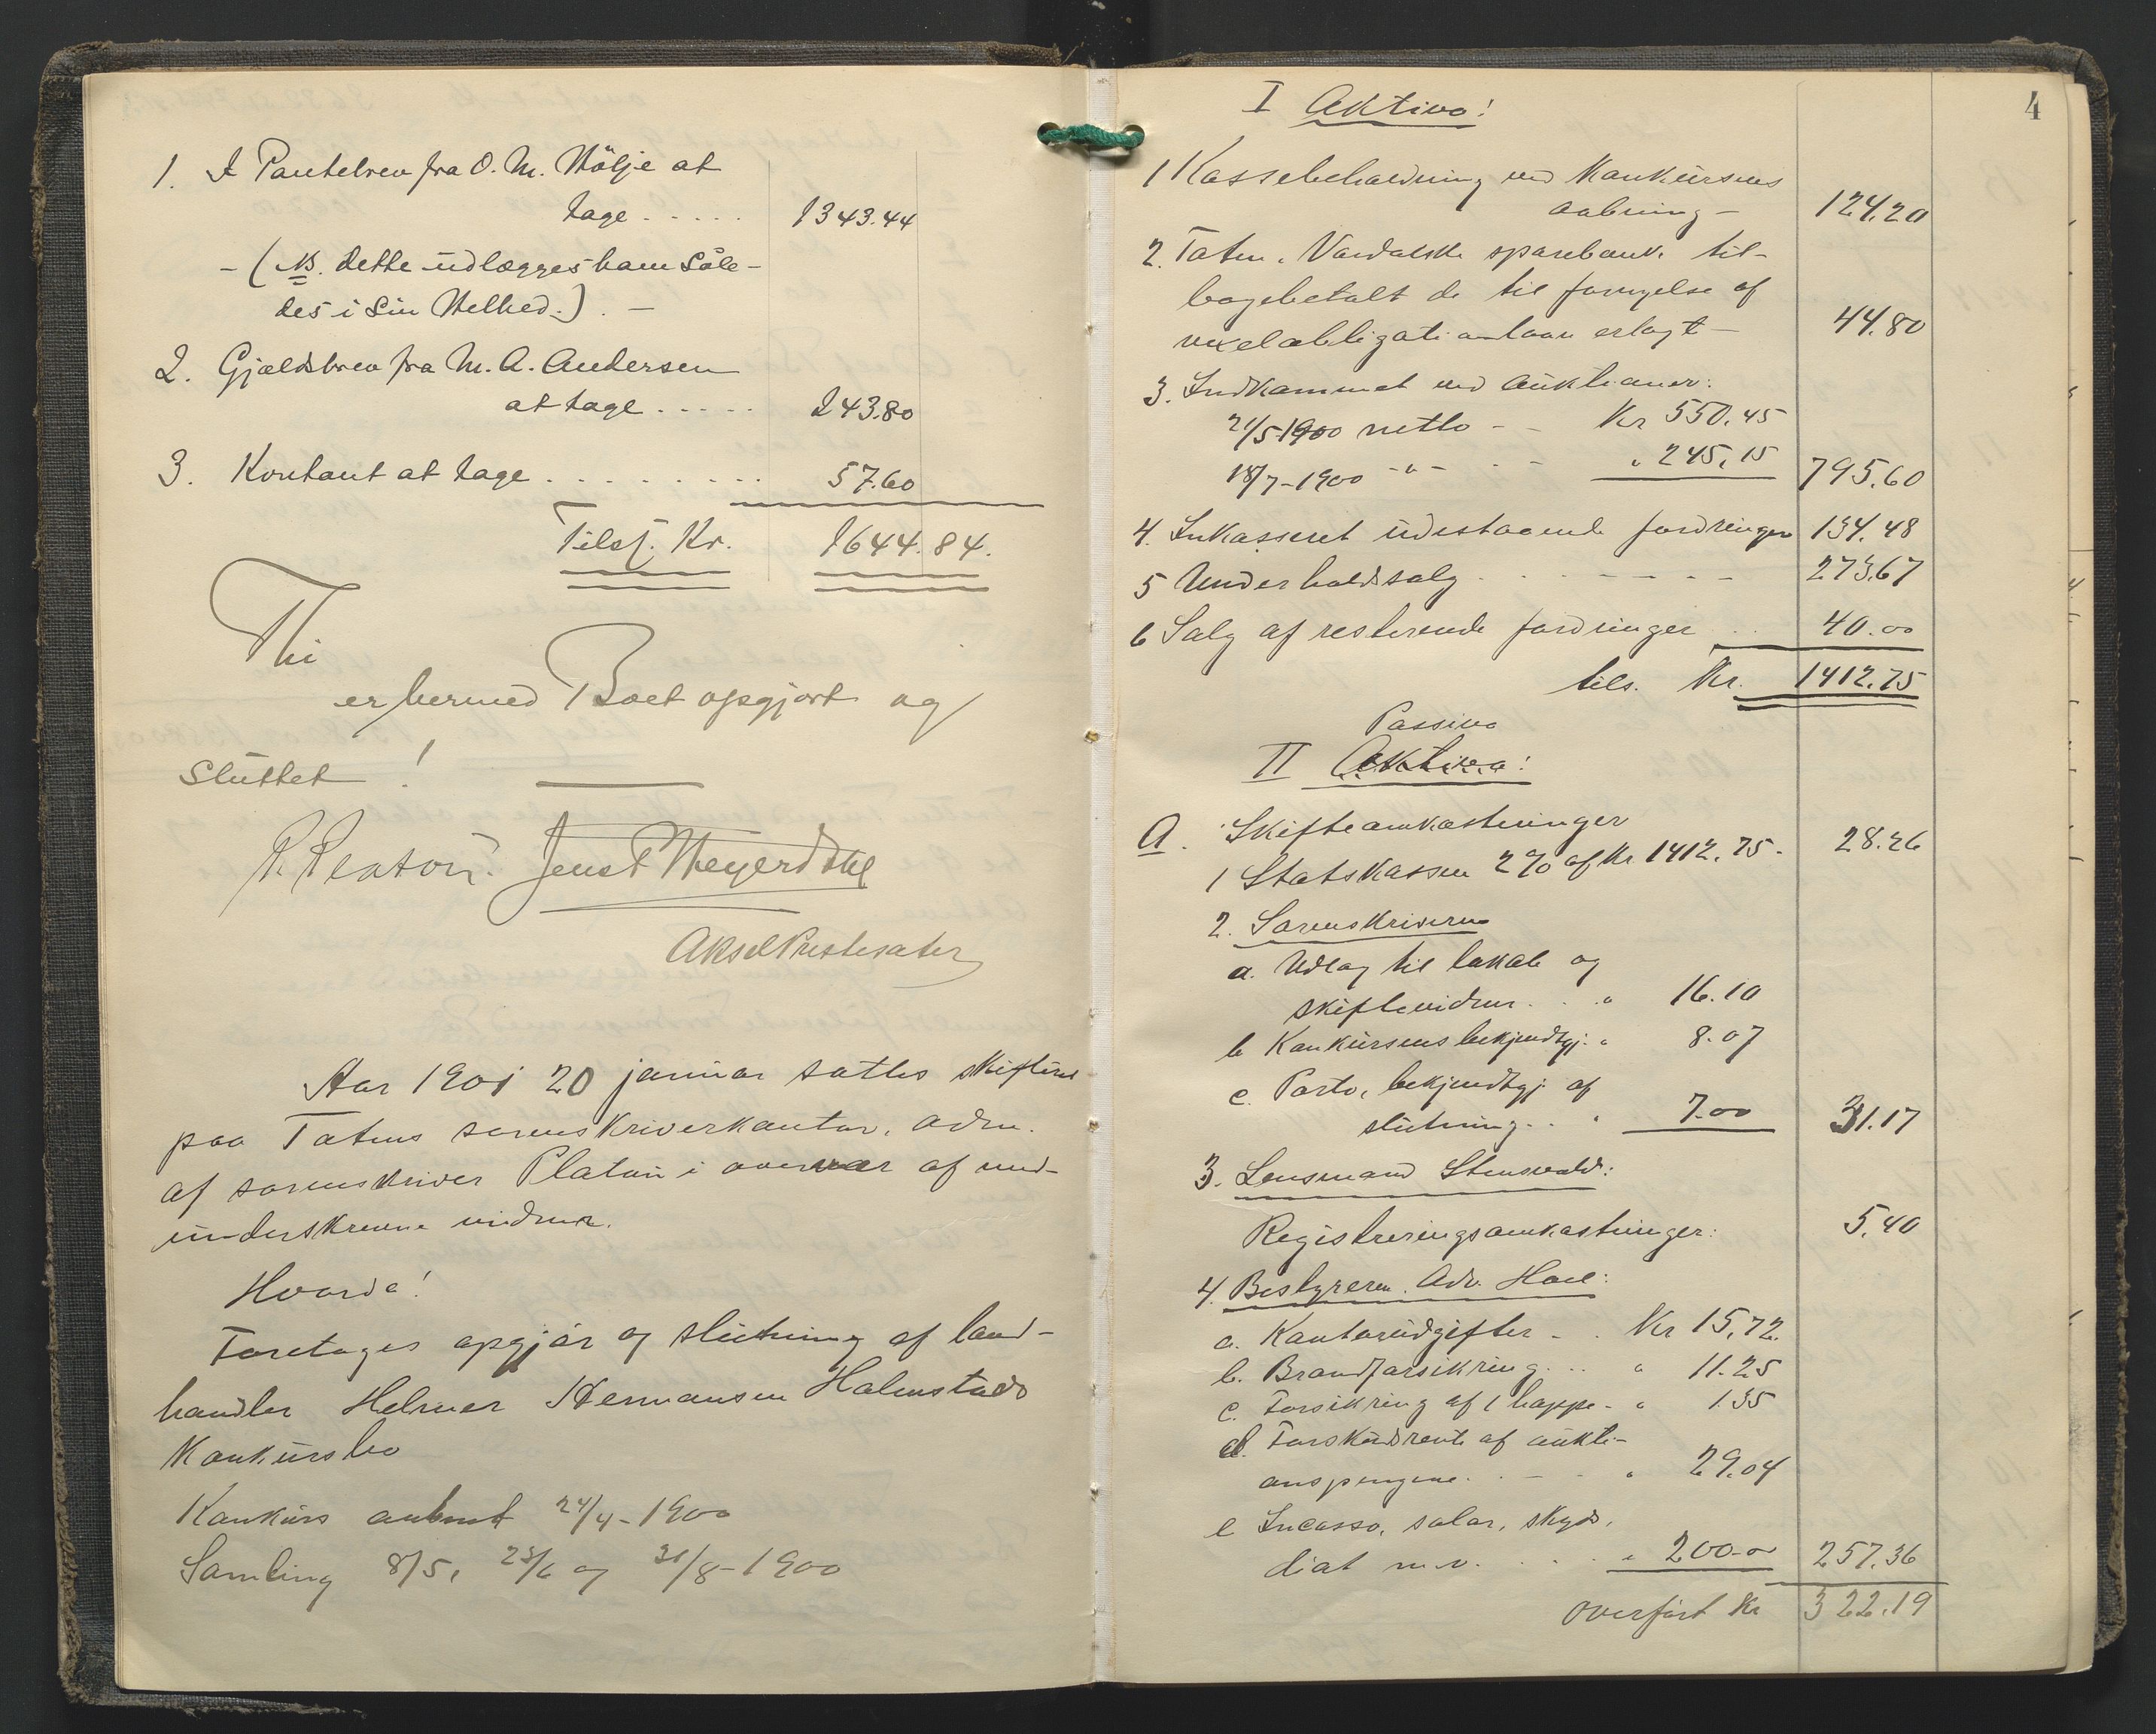 1. I Pantebrev fra O. M. Kölje at
tage ..... 1343.44
- (NB. dette udlægges ham Såle-
des i Sin Helhed.). -
2. Gjældsbrev fra M. A. Andersen
at tage ..... 243.80
3. Kontant at tage ......... 57.60
Tils. Kr. 1644.84.
Thi
er hermed Boet opgjort og
Sluttet!
P. Platou. Jens Meyerdahl
Aksel Prestesater
Aar 1901 20 januar sattes skifteret
paa Totens sorenskriverkontor, adm.
af sorenskriver Platou i overvær af med-
underskrevne vidner.
Hvorda!
Foretoges opgjør og slutning af land-
handler Helmer Hermansen Halmstads
Konkursbo
Konkurs aabnet 24/4-1900
Samling 8/5, 23/6 og 31/8-1900
4
I Aktiva!
1 Kassebeholdning ved Konkursens
aabning - 124.20
2. Toten, Vardalske sparebank til-
bagebetalt de til fornyelse af
vexelobligationlaan erlagt - 44.80
3. Indkommet ved auktioner:
21/5-1900 netto - - Kr 550.45
18/7-1900 -"- - - " 245.15 795.60
4. Inkasseret udestaaende fordringer 134.48
5 Underholdssalg - - - - - 273.67
6 Salg af resterende fordringer .. 40.00
tils. Kr. 1412.75
Passiva
II Aktiva:
A. Skifteomkostninger
1 Statskassen 2% af Kr 1412.75. 28.26
2. Sorenskriveren
a. Udlæg til lokale og
skiftevidner. . " 16.10
b Konkursens bekjendtgj. " 8.07
c. Porto, bekjendtgj. af
slutning .. " 7.00 31.17
3. Lensmand Stensvold:
Registreringsomkostninger: 5.40
4. Bestyreren. Adv. Hoel:
a. Kontorudgifter - . Kr 15.72.
b. Brandforsikring. .. " 11.25
c. Forsikring af 1 hoppe - " 1.35
d. Forskudsrente af aukti-
onspengene. . - . " 29.04
e Incasso, salær, skyds,
diæt m.v. . . . " 200.00 257.36
overført Kr 322.19